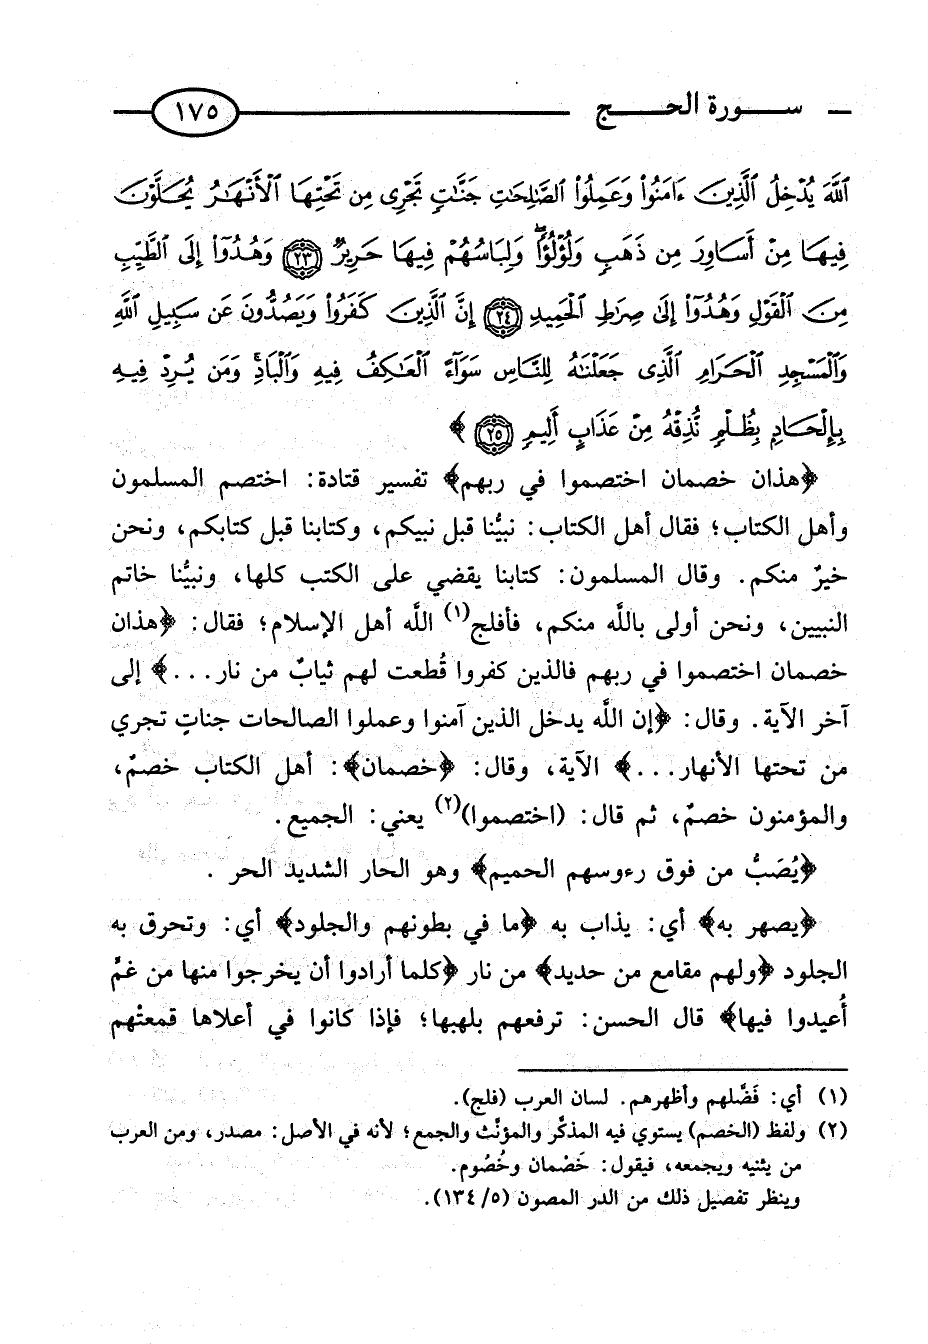 سورة الحج ١٧٥
ٱللَّهَ يُدْخِلُ ٱلَّذِينَ ءَامَنُوا۟ وَعَمِلُوا۟ ٱلصَّٰلِحَٰتِ جَنَّٰتٍ تَجْرِى مِن تَحْتِهَا ٱلْأَنْهَٰرُ يُحَلَّوْنَ
فِيهَا مِنْ أَسَاوِرَ مِن ذَهَبٍ وَلُؤْلُؤًاۖ وَلِبَاسُهُمْ فِيهَا حَرِيرٌ ٢٣ وَهُدُوٓا۟ إِلَى ٱلطَّيِّبِ
مِنَ ٱلْقَوْلِ وَهُدُوٓا۟ إِلَىٰ صِرَٰطِ ٱلْحَمِيدِ ٢٤ إِنَّ ٱلَّذِينَ كَفَرُوا۟ وَيَصُدُّونَ عَن سَبِيلِ ٱللَّهِ
وَٱلْمَسْجِدِ ٱلْحَرَامِ ٱلَّذِى جَعَلْنَٰهُ لِلنَّاسِ سَوَآءً ٱلْعَٰكِفُ فِيهِ وَٱلْبَادِۚ وَمَن يُرِدْ فِيهِ
بِإِلْحَادٍۭ بِظُلْمٍ نُّذِقْهُ مِنْ عَذَابٍ أَلِيمٍ ٢٥ ﴾
﴿هذان خصمان اختصموا في ربهم﴾ تفسير قتادة: اختصم المسلمون
وأهل الكتاب؛ فقال أهل الكتاب: نبيُّنا قبل نبيكم، وكتابنا قبل كتابكم، ونحن
خيرٌ منكم. وقال المسلمون: كتابنا يقضي على الكتب كلها، ونبيُّنا خاتم
النبيين، ونحن أولى باللَّه منكم، فأفلج(١) اللَّه أهل الإسلام؛ فقال: ﴿هذان
خصمان اختصموا في ربهم فالذين كفروا قُطعت لهم ثيابٌ من نار...﴾ إلى
آخر الآية. وقال: ﴿إن اللَّه يدخل الذين آمنوا وعملوا الصالحات جناتٍ تجري
من تحتها الأنهار...﴾ الآية، وقال: ﴿خصمان﴾: أهل الكتاب خصمٌ،
والمؤمنون خصمٌ، ثم قال: (اختصموا)(٢) يعني: الجميع.
﴿يُصَبُّ من فوق رءوسهم الحميم﴾ وهو الحار الشديد الحر .
﴿يصهر به﴾ أي: يذاب به ﴿ما في بطونهم والجلود﴾ أي: وتحرق به
الجلود ﴿ولهم مقامع من حديد﴾ من نار ﴿كلما أرادوا أن يخرجوا منها من غمٍّ
أُعيدوا فيها﴾ قال الحسن: ترفعهم بلهبها؛ فإذا كانوا في أعلاها قمعتْهم
(١) أي: فَضَّلهم وأظهرهم. لسان العرب (فلج).
(٢) ولفظ (الخصم) يستوي فيه المذكَّر والمؤنَّث والجمع؛ لأنه في الأصل: مصدر، ومن العرب
من يثنيه ويجمعه، فيقول: خَصْمان وخُصُوم.
وينظر تفصيل ذلك من الدر المصون (٥/ ١٣٤).